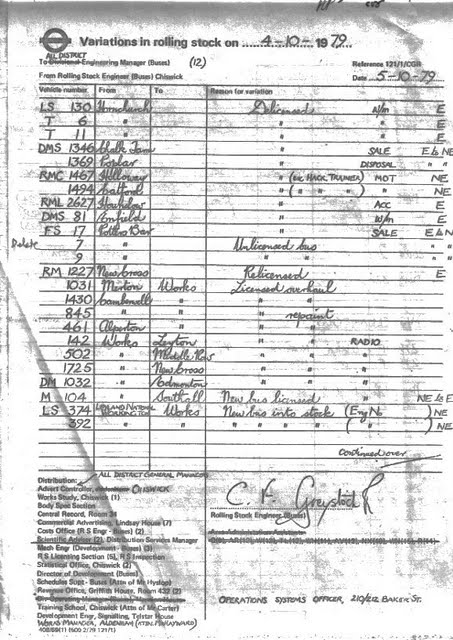 Variations in rolling stock on 4-10-1979.
ALL DISTRICT
To Divisional Engineering Manager (Buses) (12) Reference 121/1/CGR
From Rolling Stock Engineer (Buses) Chiswick Date 5-10-79
Vehicle number From To Reason for variation
LS 130 Hornchurch Delicensed W/m E
T 6 " " " E
T 11 " " " E
DMS 1346 Chalk Farm " SALE E to NE
1369 Poplar " DISPOSAL " "
RMC 1467 Holloway " (ex HACK TRAINER) MOT NE
1494 " ( " " " ) " NE
RML 2627 " ACC E
DMS 81 Enfield " W/m E
FS 17 Potters Bar " SALE E to N
Delete 7 " Unlicensed bus " "
9 " " " " "
RM 1227 New Cross Relicensed E
1031 Merton Works Licensed overhaul
1430 Camberwell " " "
845 " " " repaint
461 Alperton " " "
142 Works Leyton " RADIO
502 " Middle Row " "
1725 " New Cross " "
DM 1032 " Edmonton " "
M 104 " Southall New bus licensed NE to E
LS 374 LEYLAND NATIONAL WORKINGTON Works New bus into stock (Eng No ) NE
392 " " " " " " ( " ) NE
Continued over
Distribution: ALL DISTRICT GENERAL MANAGERS
Advert Controller, CHISWICK
Works Study, Chiswick (1)
Body Spec Section
Central Record, Room 24
Commercial Advertising, Lindsay House (7)
Costs Office (R S Engr - Buses) (2)
Scientific Adviser (2), Distribution Services Manager
Mech Engr (Development - Buses) (3)
R S Licensing Section (5), R S Inspection
Statistical Office, Chiswick (2)
Director of Development (Buses)
Schedules Supt - Buses (Attn of Mr Hyslop)
Revenue Office, Griffith House, Room 432 (2)
Training School, Chiswick (Attn of Mr Carter)
Development Engr, Signalling, Telstar House
WORKS MANAGER, ALDENHAM
C. F. Greystock
Rolling Stock Engineer (Buses)
OPERATIONS SYSTEMS OFFICER, 210/212 BAKER ST.